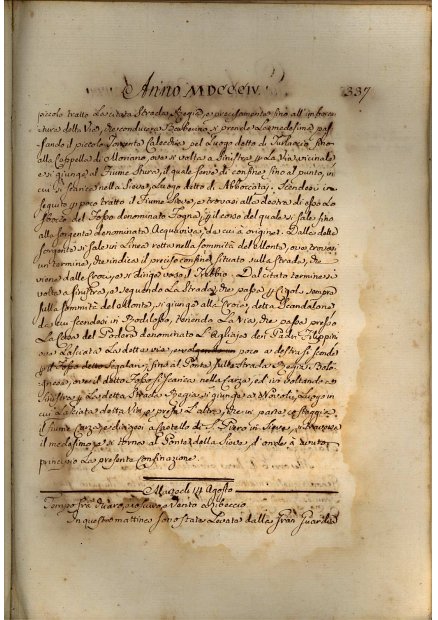 Anno MDCCCIV. 337
piccolo tratto la citata Strada Regia, e precisamente fino all'imboc=
catura della Via, che conduce a Barberino, si prende la medesima, pas=
sando il piccolo Torrente Calecchia pel Luogo detto di Turlaccio fino
alla Cappella di Moriano, ove si volta a Sinistra p la Via vicinale
e si giunge al Fiume Stura, il quale serve di confine fino al punto, in
cui si scarica nella Sieve, Luogo detto di Abborcitaj. Scendesi in
seguito p poco tratto il Fiume Sieve, e trovasi alla destra di esso Lo
sbocco del Fosso denominato Fogna, p il corso del quale si sale fino
alla sorgente denominata Acquaviva, da cui à origine. Dalla detta
Sorgente si sale in Linea retta nella sommità del Monte, ove trovasi
un termine, che indica il preciso confine, situato sulla strada, che
viene dalle Croci, e si dirige verso il Trebbio. Dal citato termine si
volta a sinistra, e seguendo La Strada, che passa p Cigoli sempre
sulla sommità del Monte, si giunge alla Croce, detta Scandalona
da cui scendesi in Bosilossi, tenendo La Via, che passa presso
La Casa del Podere denominato L'Agliaja dei Padri Filippini,
ove Lasciata La detta via, e poco a destra si scende
p il Fosso detto fino al Ponte sulla Strada Regia Bolo=
gnese, ove il detto Fosso si scarica nella Carza, ed ivi voltando a
Sinistra p La detta Strada Regia si giunge a Novoli, Luogo in
cui Lasciata detta Via, e presa L'altra, che in parte costeggia
il fiume Carza, e dirigesi a Castello di S. Piero in Sieve, si traversa
il medesimo, e si torna al Ponte della Sieve, d'onde à avuto
principio La presente Confinazione.
Martedì 14 Agosto
Tempo frà chiaro, e scuro, e Vento a Libeccio
In questa mattina sono state Levate dalla Gran Guardia